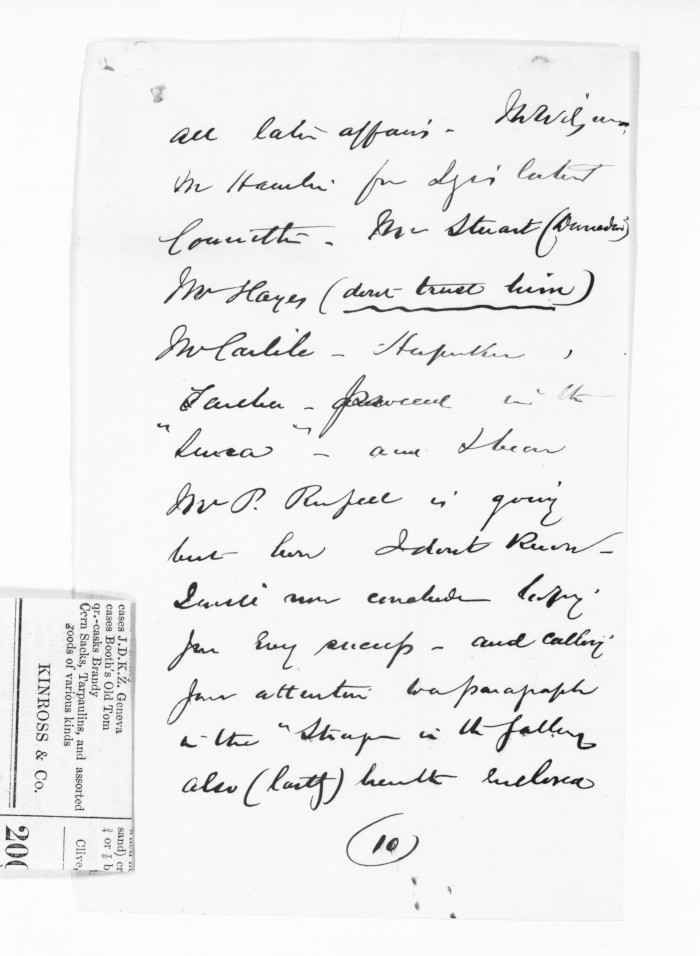 all later affairs -
for
Mr Stuart (Dunedin)
Mr Hayes (dont trust him)
Mr Carlile -
- proceed in the
" " - and I hear
Mr P. Russell is going
but how I dont know -
I will now conclude
you every success - and calling
your attention to a paragraph
in the " in the Gallery
also (lastly) herewith enclosed
(10)
cases J.D.K.Z. Geneva
cases Booth's Old Tom
qr.-casks Brandy
Corn Sacks, Tarpaulins, and assorted
goods of various kinds
KINROSS & Co.
sand) or
Clive,
200